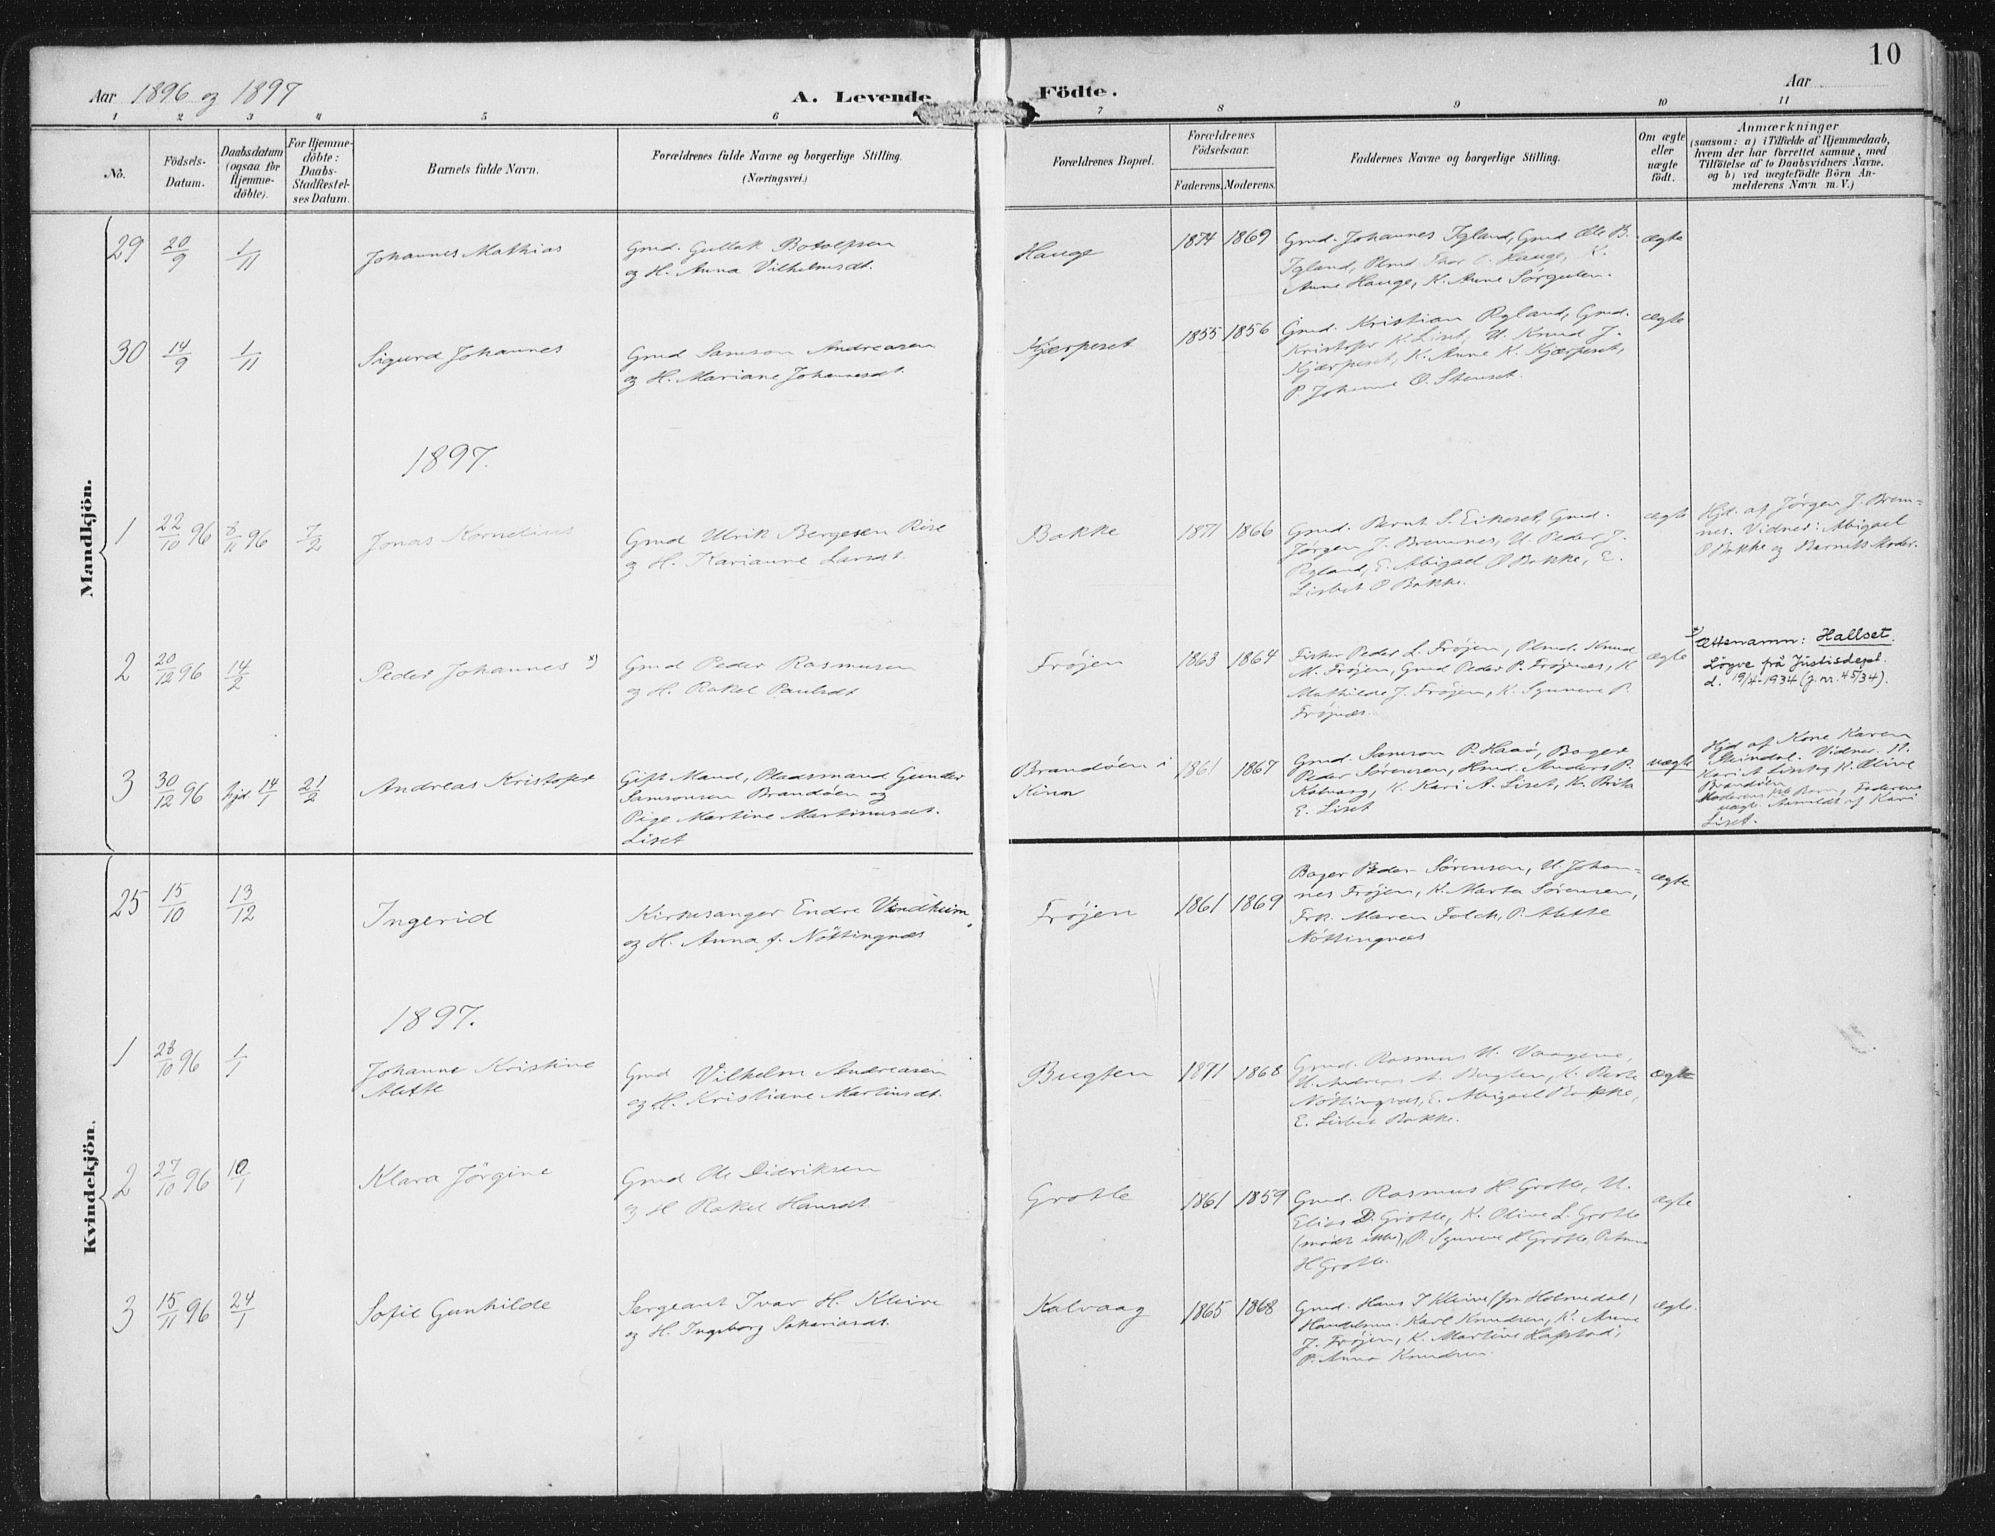 10
Aar 1896 og 1897
A. Levende Födte.
Aar
1 2 3 4 5 6 7 8 9 10 11
No.
Födsels-
Datum.
Daabsdatum
(ogsaa for
Hjemme-
döbte).
For Hjemme-
döbte:
Daabs-
Stadfæstel-
ses Datum.
Barnets fulde Navn.
Forældrenes fulde Navne og borgerlige Stilling.
(Næringsvei.)
Forældrenes Bopæl.
Forældrenes
Födselsaar.
Faderens. Moderens.
Faddernes Navne og borgerlige Stilling.
Om ægte
eller
uægte
födt.
Anmærkninger
(saasom: a) i Tilfælde af Hjemmedaab,
hvem der har forrettet samme, med
Tilföielse af to Daabsvidners Navne.
og b) ved uægtefödte Börn An-
melderens Navn m. V.)
Mandkjön.
29 20/9 1/11 Johannes Mathias
Gmd. Gullak Botolfsen
og H. Anna Vilhelmsdt.
Hauge 1874 1869
Gmd. Johannes Igland, Gmd Ole B.
Igland, Plmd. Thor O. Hauge, K.
Anne Hauge, K. Anne Sörgulen.
ægte
30 14/9 1/11 Sigurd Johannes
Gmd Samson Andreasen
og H. Mariane Johannesdt.
Kjærpeset 1855 1856
Gmd. Kristian Ryland, Gmd.
Kristofer K. Liset, U. Knud J.
Kjærpeset, K. Anne K. Kjærpeset,
P. Johanne O. Stenset.
ægte
1897.
1 22/10 96 8/11 96 7/2 Jonas Kornelius
Gmd Ulrik Bergesen Rise
og H. Karianne Larsdt.
Bakke 1871 1866
Gmd. Bernt S. Eikeset, Gmd.
Jörgen J. Bremnes, U. Peder J.
Ryland, E. Abigael O Bakke, E.
Lisbet P Bakke.
ægte
Hjd. af Jörgen J. Brem-
nes. Vidner: Abigael
O Bakke og Barnets Moder.
2 20/12 96 14/2 Peder Johannes x)
Gmd Peder Rasmusen
og H. Rakel Paulsdt
Fröjen 1863 1864
Fisker Peder L. Fröjen, Plmd. Knud
M. Fröjen, Gmd Peder P. Fröjnæs, K
Mathilde J. Fröjen, K. Synneve P.
Fröjnæs.
ægte
x) Ættenamn: Hallset.
Löyve frå Justisdept.
d. 19/4-1934 (j.nr. 45/34).
3 30/12 96 hjd. 14/1 21/2 Andreas Kristofer
Gift Mand, Pladsmand Gunder
Samsonsen Brandöen og
Pige Martine Martinusdt.
Liset
Brandöen i
Kinn
1861 1867
Gmd. Samson P. Haaö, Bager
Peder Sörensen, Hmd. Anders P.
Kalvaag, K. Kari A. Liset, K. Brita
E. Liset
uægte
Hjd af Kone Karen
Skindal. Vidner. K.
Kari A Liset og K. Olive
Brandöen.
Moderens Barn, Faderens
uægte. Anmeldt af Kari
Liset.
Kvindekjön.
25 15/10 13/12 Ingerid
Kirkesanger Endre Vindheim
og H. Anna f. Nöttingnæs
Fröjen 1861 1869
Bager Peder Sörensen, U. Johan-
nes Fröjen, K. Marta Sörensen,
Frk. Maren Falch, P. Alette
Nöttingnæs
ægte
1897.
1 28/10 96 1/1 Johanne Kristine
Alette
Gmd Vilhelm Andreasen
og H. Kristiane Martinsdt.
Bugten 1871 1868
Gmd. Rasmus U. Vaagene,
U. Andreas A. Bugten, K. Berte
Nöttingnæs, E. Abigael Bakke,
E. Lisbet Bakke.
ægte
2 27/10 96 10/1 Klara Jörgine
Gmd Ole Didriksen
og H Rakel Hansdt
Grotle 1861 1859
Gmd. Rasmus H. Grotle, U.
Elias D. Grotle, K. Oline L. Grotle
(mödt ikke), P. Synneve H Grotle, P. Anna
H Grotle.
ægte
3 15/11 96 24/1 Sofie Gunhilde
Sergeant Ivar H. Kleive
og H. Ingeborg Sakariasdt.
Kalvaag 1865 1868
Gmd. Hans I Kleive (fra Holmedal)
Handelsm. Karl Knudsen, K. Anne
J. Fröjen, K. Martine Hafstad,
P. Anna Knudsen.
ægte.